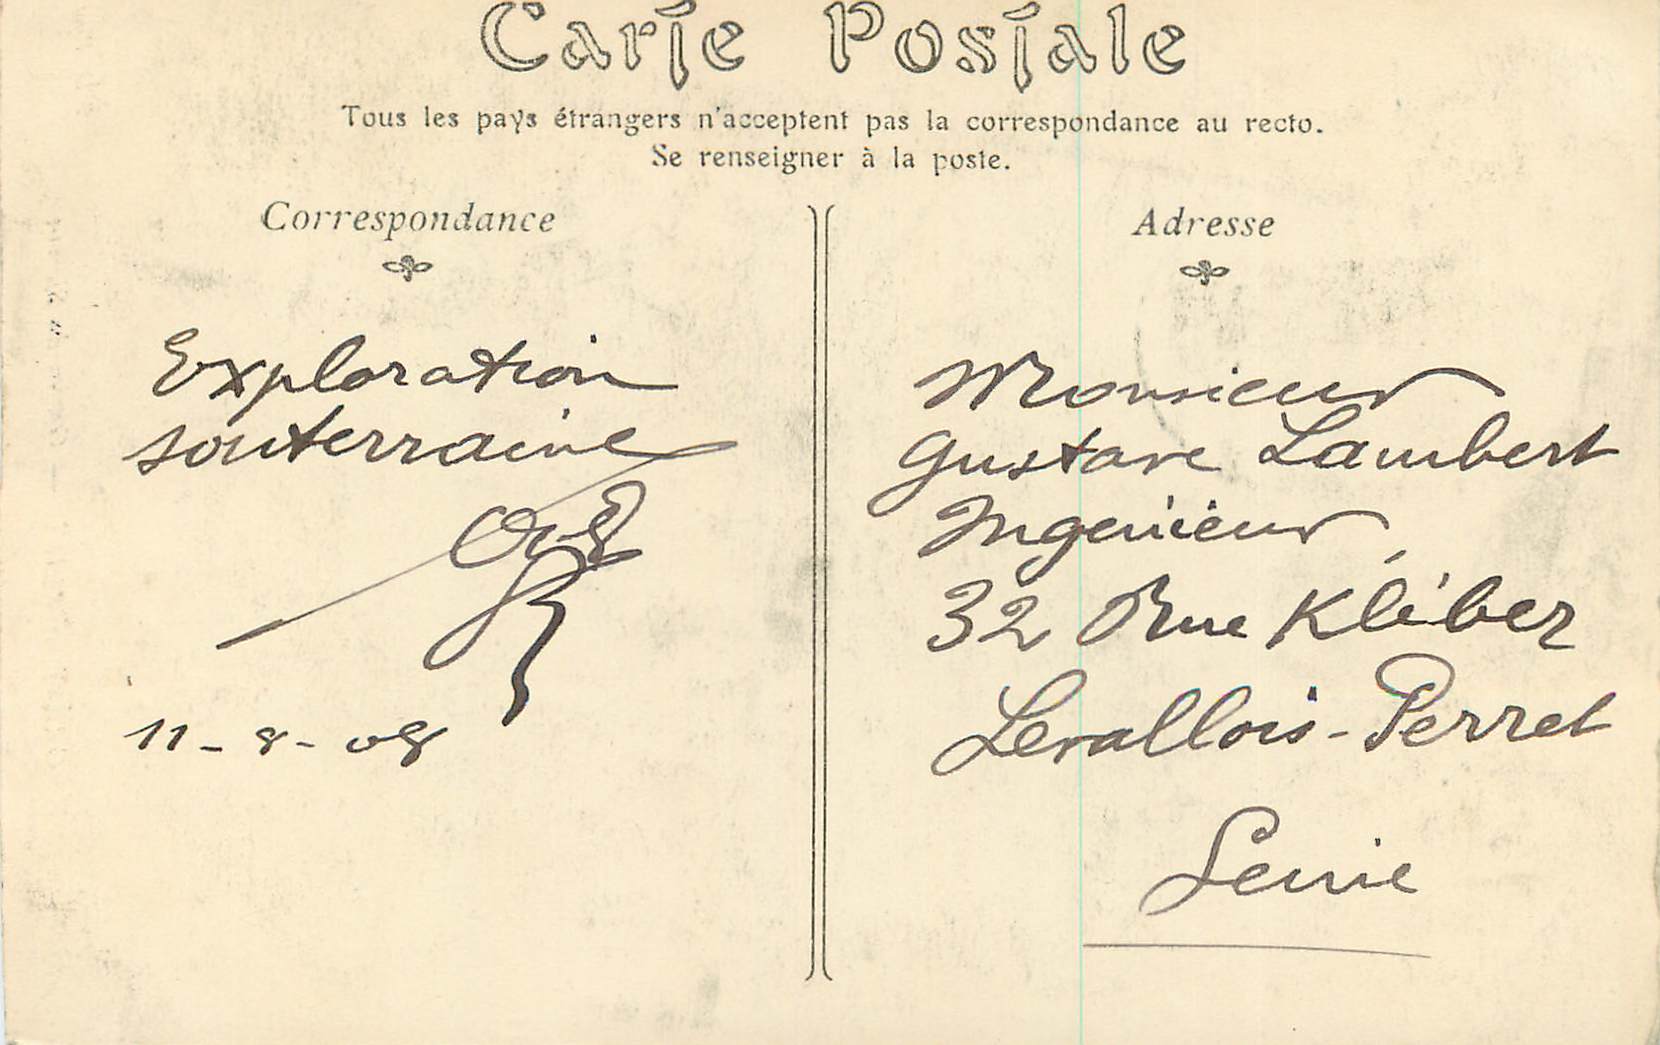 Carte Postale
Tous les pays étrangers n'acceptent pas la correspondance au recto.
Se renseigner à la poste.
Correspondance
Exploration
souterraine
11-8-08
Adresse
Monsieur
Gustave Lambert
Ingénieur,
32 Rue Kléber
Levallois-Perret
Seine